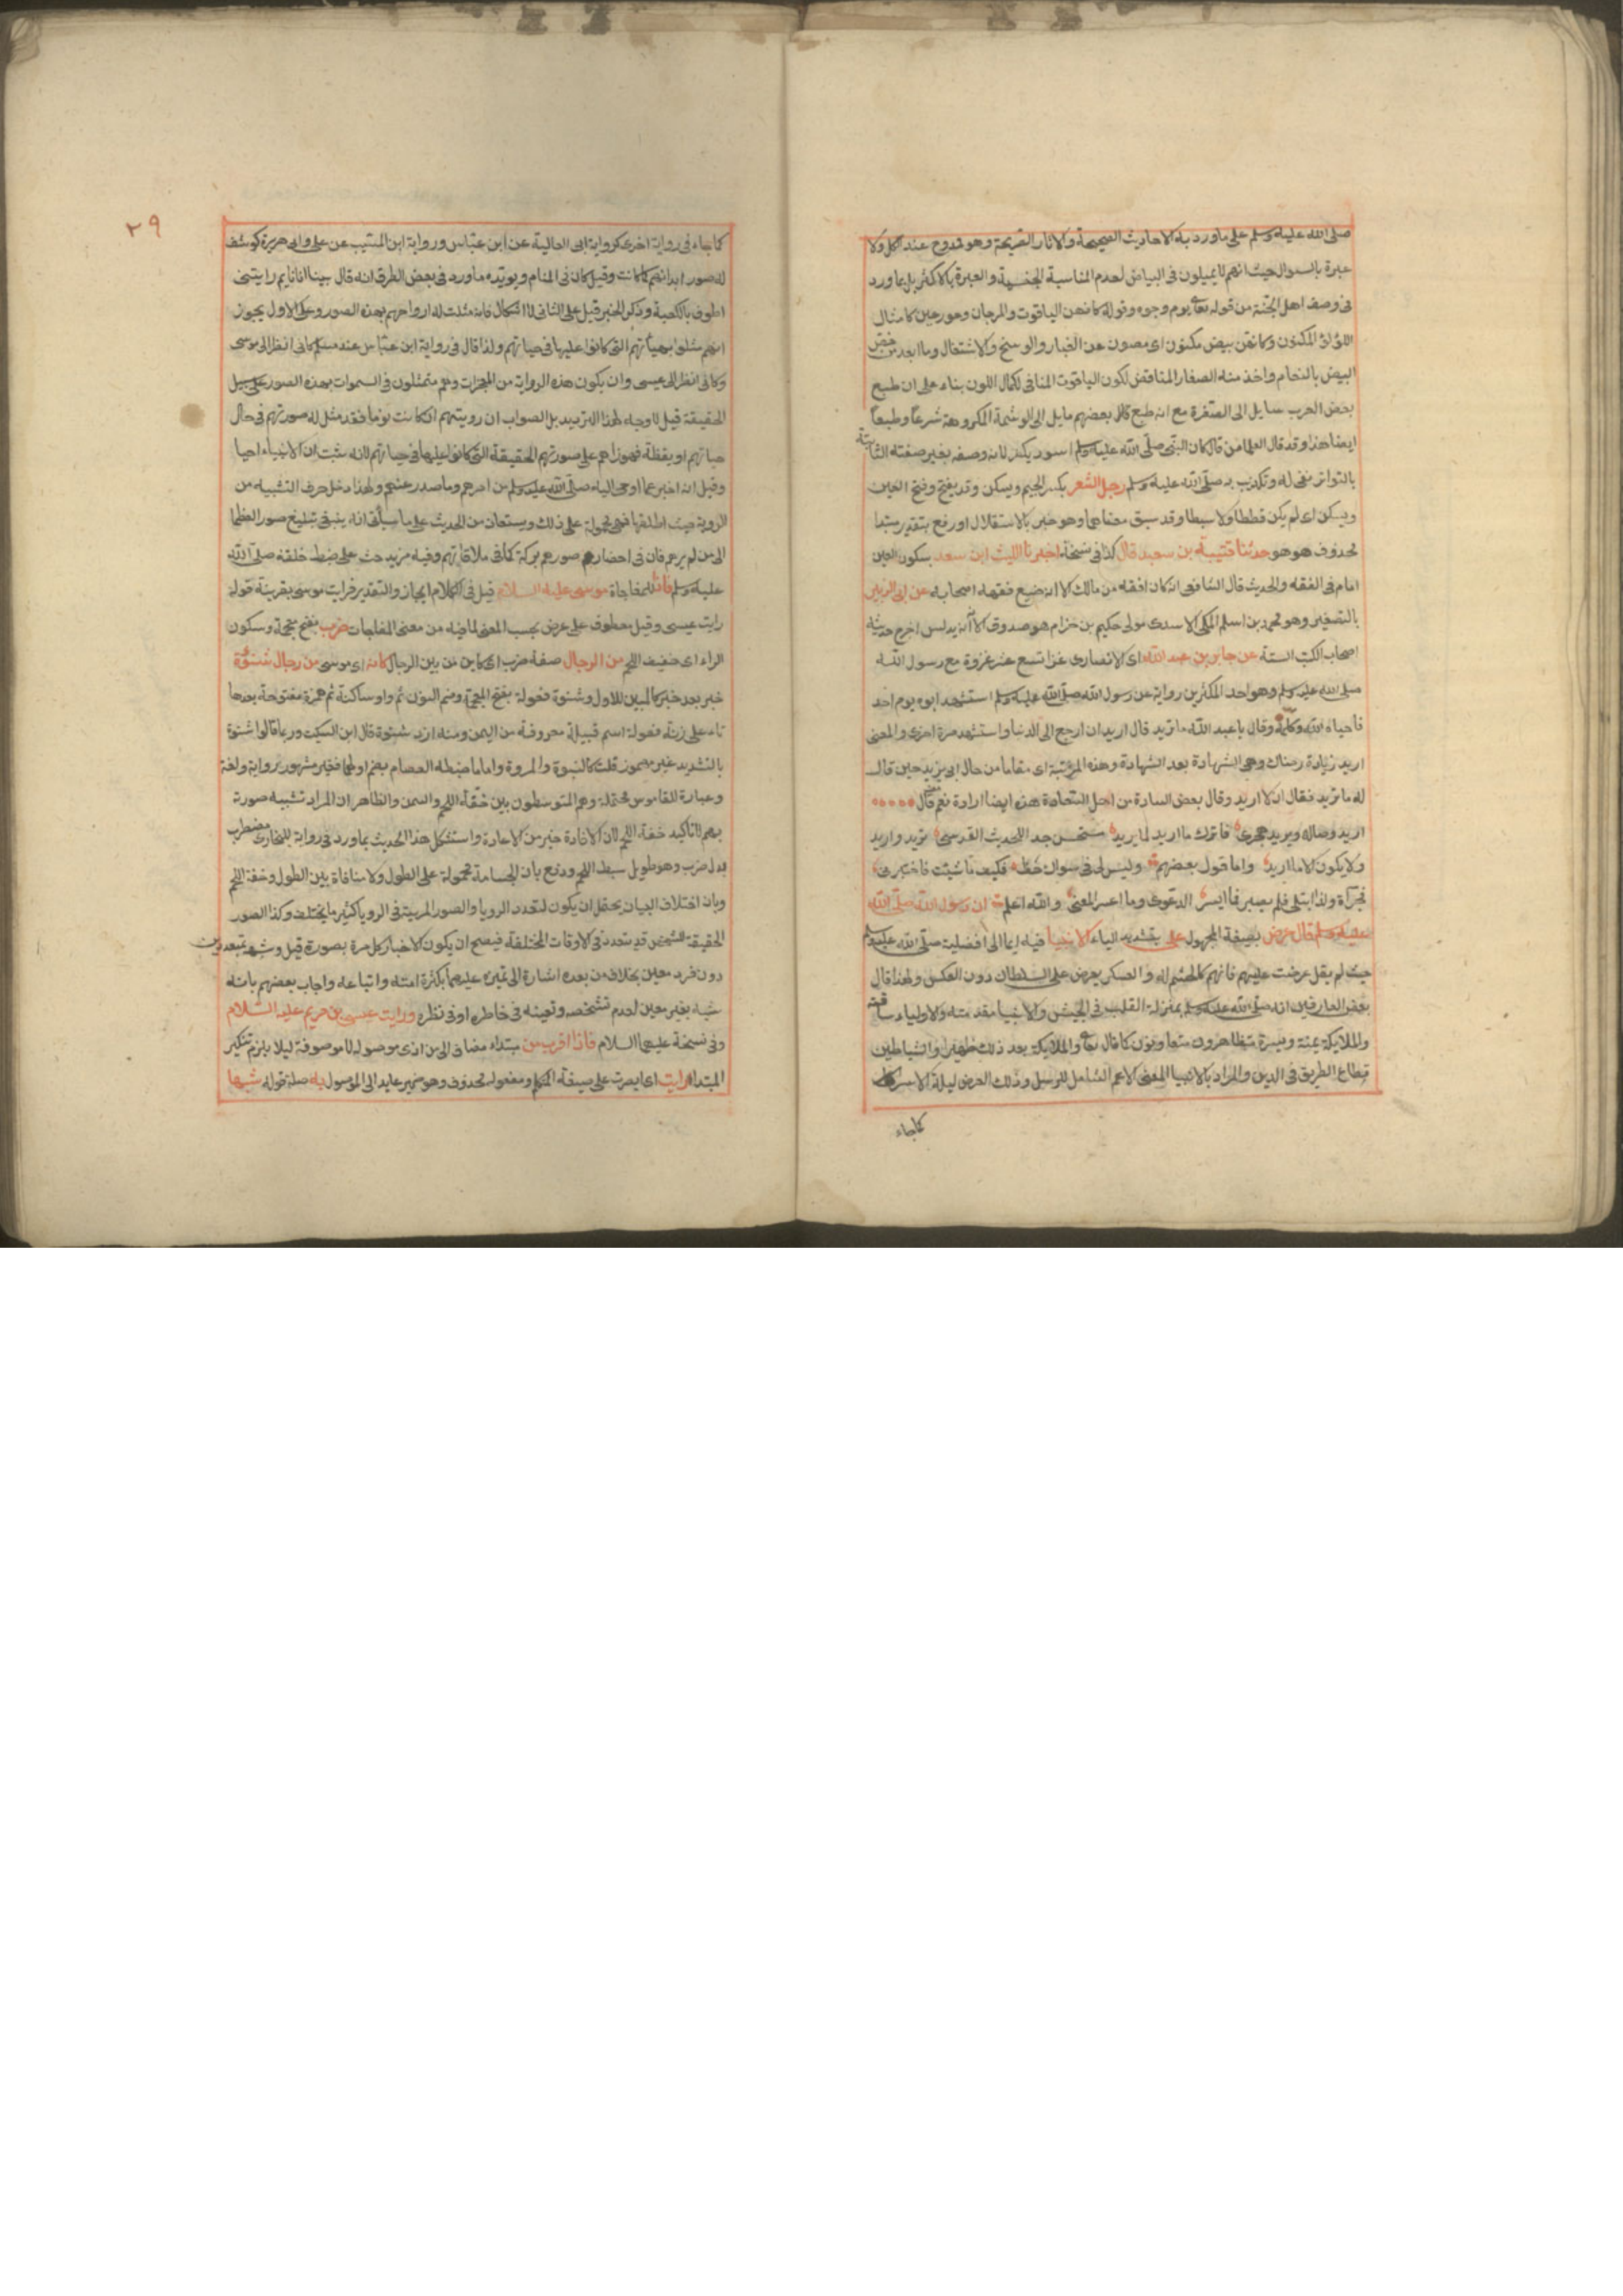 صلى الله عليه وسلم على ما ورد به الاحاديث الصحيحة والاثار الصريحة وهو ممدوح عند الكل ولا
عبرة بالسودان حيث انهم لا يميلون في البياض لعدم المناسبة الجنسية والعبرة بالاكثر بل بما ورد
في وصف اهل الجنة من قوله تعالى يوم وجوه وقوله كانهن الياقوت والمرجان وحور عين كامثال
اللؤلؤ المكنون وكانهن بيض مكنون اى مصون عن الغبار والوسخ والاشتغال وما ابعد من خص
البيض بالنعام واخذ منه الصفار المناقض لكون الياقوت المنافى لكمال اللون بناء على ان طبع
بعض العرب مايل الى الصفرة مع انه طبع بعضهم مايل الى الوشمة المكروهة شرعا وطبعا
ايضا هذا وقد قال العلما من قال كان النبى صلى الله عليه وسلم اسود يكفر لانه وصفه بغير صفته الثابتة
بالتواتر نفى له وتكذيب به صلى الله عليه وسلم رجل الشعر بكسر الجيم ويسكن وقد يفتح وفتح العين
ويسكن اى لم يكن قططا ولا سبطا وقد سبق معناهما وهو خبر بالاستقلال او رفع بتقدير مبتدا
محذوف هو هو حدثنا قتيبة بن سعيد قال كذا في نسخة اخبرنا الليث ابن سعد بسكون العين
امام في الفقه والحديث قال الشافعى انه كان افقه من مالك الا انه ضيع فقهه اصحابه عن ابى الزبير
بالتصغير وهو محمد بن اسلم المكى الاسدى مولى حكيم بن حزام هو صدوق الا انه يدلس اخرج حديثه
اصحاب الكتب الستة عن جابر بن عبد الله اى الانصارى غزا تسع عشر غزوة مع رسول الله
صلى الله عليه وسلم وهو احد المكثرين رواية عن رسول الله صلى الله عليه وسلم استشهد ابوه يوم احد
فاحياه الله وكلمه وقال يا عبد الله ما تريد قال اريد ان ارجع الى الدنيا واستشهد مرة اخرى والمعنى
اريد زيادة رضاك وهى الشهادة بعد الشهادة وهذه المرتبة اى مقاما من حال ابى يزيد حين قال
له ما تريد فقال ان لا اريد وقال بعض السادة من اهل السعادة هذه ايضا ارادة نعم قال
اريد وصاله ويريد هجرى فاترك ما اريد لما يريد مستحسن جد الحديث القدسى تريد واريد
ولا يكون الا ما اريد واما قول بعضهم وليس لى في سواك حظ فكيف ما شئت فاختبرنى
فجرأة ولذا ابتلى فلم يصبر فما ايسر الدعوى وما اعسر المعنى والله اعلم ان رسول الله صلى الله
عليه وسلم قال عرض بصيغة المجهول على بتشديد الياء الانبيا فيه ايما الى افضليته صلى الله عليه وسلم
حيث لم يقل عرضت عليهم فانهم كالحشم له والعسكر يعرض على السلطان دون العكس ولهذا قال
بعض العارفين انه صلى الله عليه وسلم بمنزلة القلب في الجيش والانبيا مقدمته والاولياء ساقته
والملايكة يمنة ويسرة متظاهرون متعاونون كما قال تعالى والملايكة بعد ذلك ظهير والشياطين
قطاع الطريق في الدين والمراد بالانبيا المعنى الاعم الشامل للرسل وذلك العرض ليلة الاسراء
كما جاء
٢٩
كما جاء في رواية اخرى كرواية ابى العالية عن ابن عباس ورواية ابن المسيب عن على وابى هريرة كوشف
له صور ابدانهم كما كانت وقيل كان في المنام ويويده ما ورد في بعض الطرق انه قال بينا انا نايم رايتنى
اطوف بالكعبة وذكر الخبر قيل على الثانى لا اشكال فانه مثلت له ارواحهم بهذه الصور وعلى الاول يجوز
انهم مثلوا بهيأتهم التى كانوا عليها في حياتهم ولذا قال في رواية ابن عباس عند مسلم كانى انظر الى موسى
وكانى انظر الى عيسى وان يكون هذه الرواية من المعجزات وهم متمثلون في السموات بهذه الصور على سبيل
الحقيقة قيل لا وجه لهذا الترديد بل الصواب ان رويتهم ان كانت نوما فقد مثل له صورتهم في حال
حياتهم او يقظة فهو راهم على صورتهم الحقيقة التى كانوا عليها في حياتهم لانه ثبت ان الانبياء احيا
وقيل انه اخبر عما اوحى اليه صلى الله عليه وسلم من امرهم وما صدر عنهم ولهذا دخل حرف التشبيه من
الروية حيث اطلقها فهى محمولة على ذلك ويستعان من الحديث على ما سيأتى انه ينبغى تبليغ صور العظما
الى من لم يرهم فان في احضار صورهم بركة كما في ملاقاتهم وفيه مزيد حث على ضبط خلقه صلى الله
عليه وسلم فاذا للمفاجاة موسى عليه السلام قيل في الكلام ايجاز والتقدير فرايت موسى بقرينة قوله
رايت عيسى وقيل معطوف على عرض بحسب المعنى لما فيه من معنى المفاجات ضرب بفتح معجمة وسكون
الراء اى خفيف اللحم من الرجال صفة ضرب اى كاين من بين الرجال كانه اى موسى من رجال شنوءة
خبر بعد خبر كالمبين للاول وشنوة فعولة بفتح المعجمة وضم النون ثم واو ساكنة ثم همزة مفتوحة بعدها
تاء على زنة فعولة اسم قبيلة معروفة من اليمن ومنه ازد شنوة قال ابن السكيت وربما قالوا شنوة
بالتشديد غير مهموز قلت كالنبوة والمروة واما ما ضبطه العصام بضم اولها فغير مشهور رواية ولغة
وعبارة القاموس محتملة وهم المتوسطون بين خفة اللحم والسمن والظاهر ان المراد تشبيه صورة
بهم لا تاكيد خفة اللحم لان الافادة خير من الاعادة واستشكل هذا الحديث بما ورد في رواية للبخارى مضطرب
بدل ضرب وهو طويل سبط اللحم ودفع بان الجسامة محمولة على الطول ولا منافاة بين الطول وخفة اللحم
وبان اختلاف البيان يحتمل ان يكون لتعدد الرويا والصور المريية في الرويا كثير ما يختلف وكذا الصور
الحقيقة للشخص قد يتعدد في الاوقات المختلفة فيصح ان يكون الاخبار كل مرة بصورة قيل وشبه بمتعددين
دون فرد معين بخلاف من بعده اشارة الى تميزه عليهما بكثرة امته واتباعه واجاب بعضهم بانه
شبه بغير معين لعدم تشخصه وتعينه في خاطره او في نظره ورايت عيسى بن مريم عليه السلام
وفى نسخة عليهما السلام فاذا اقرب من مبتداء مضاف الى من الذى موصوله لا موصوفة ليلا يلزم تنكير
المبتدا رايت اى ابصرت على صيغة المتكلم ومفعوله محذوف وهو ضمير عايد الى الموصول به صلة قوله شبها